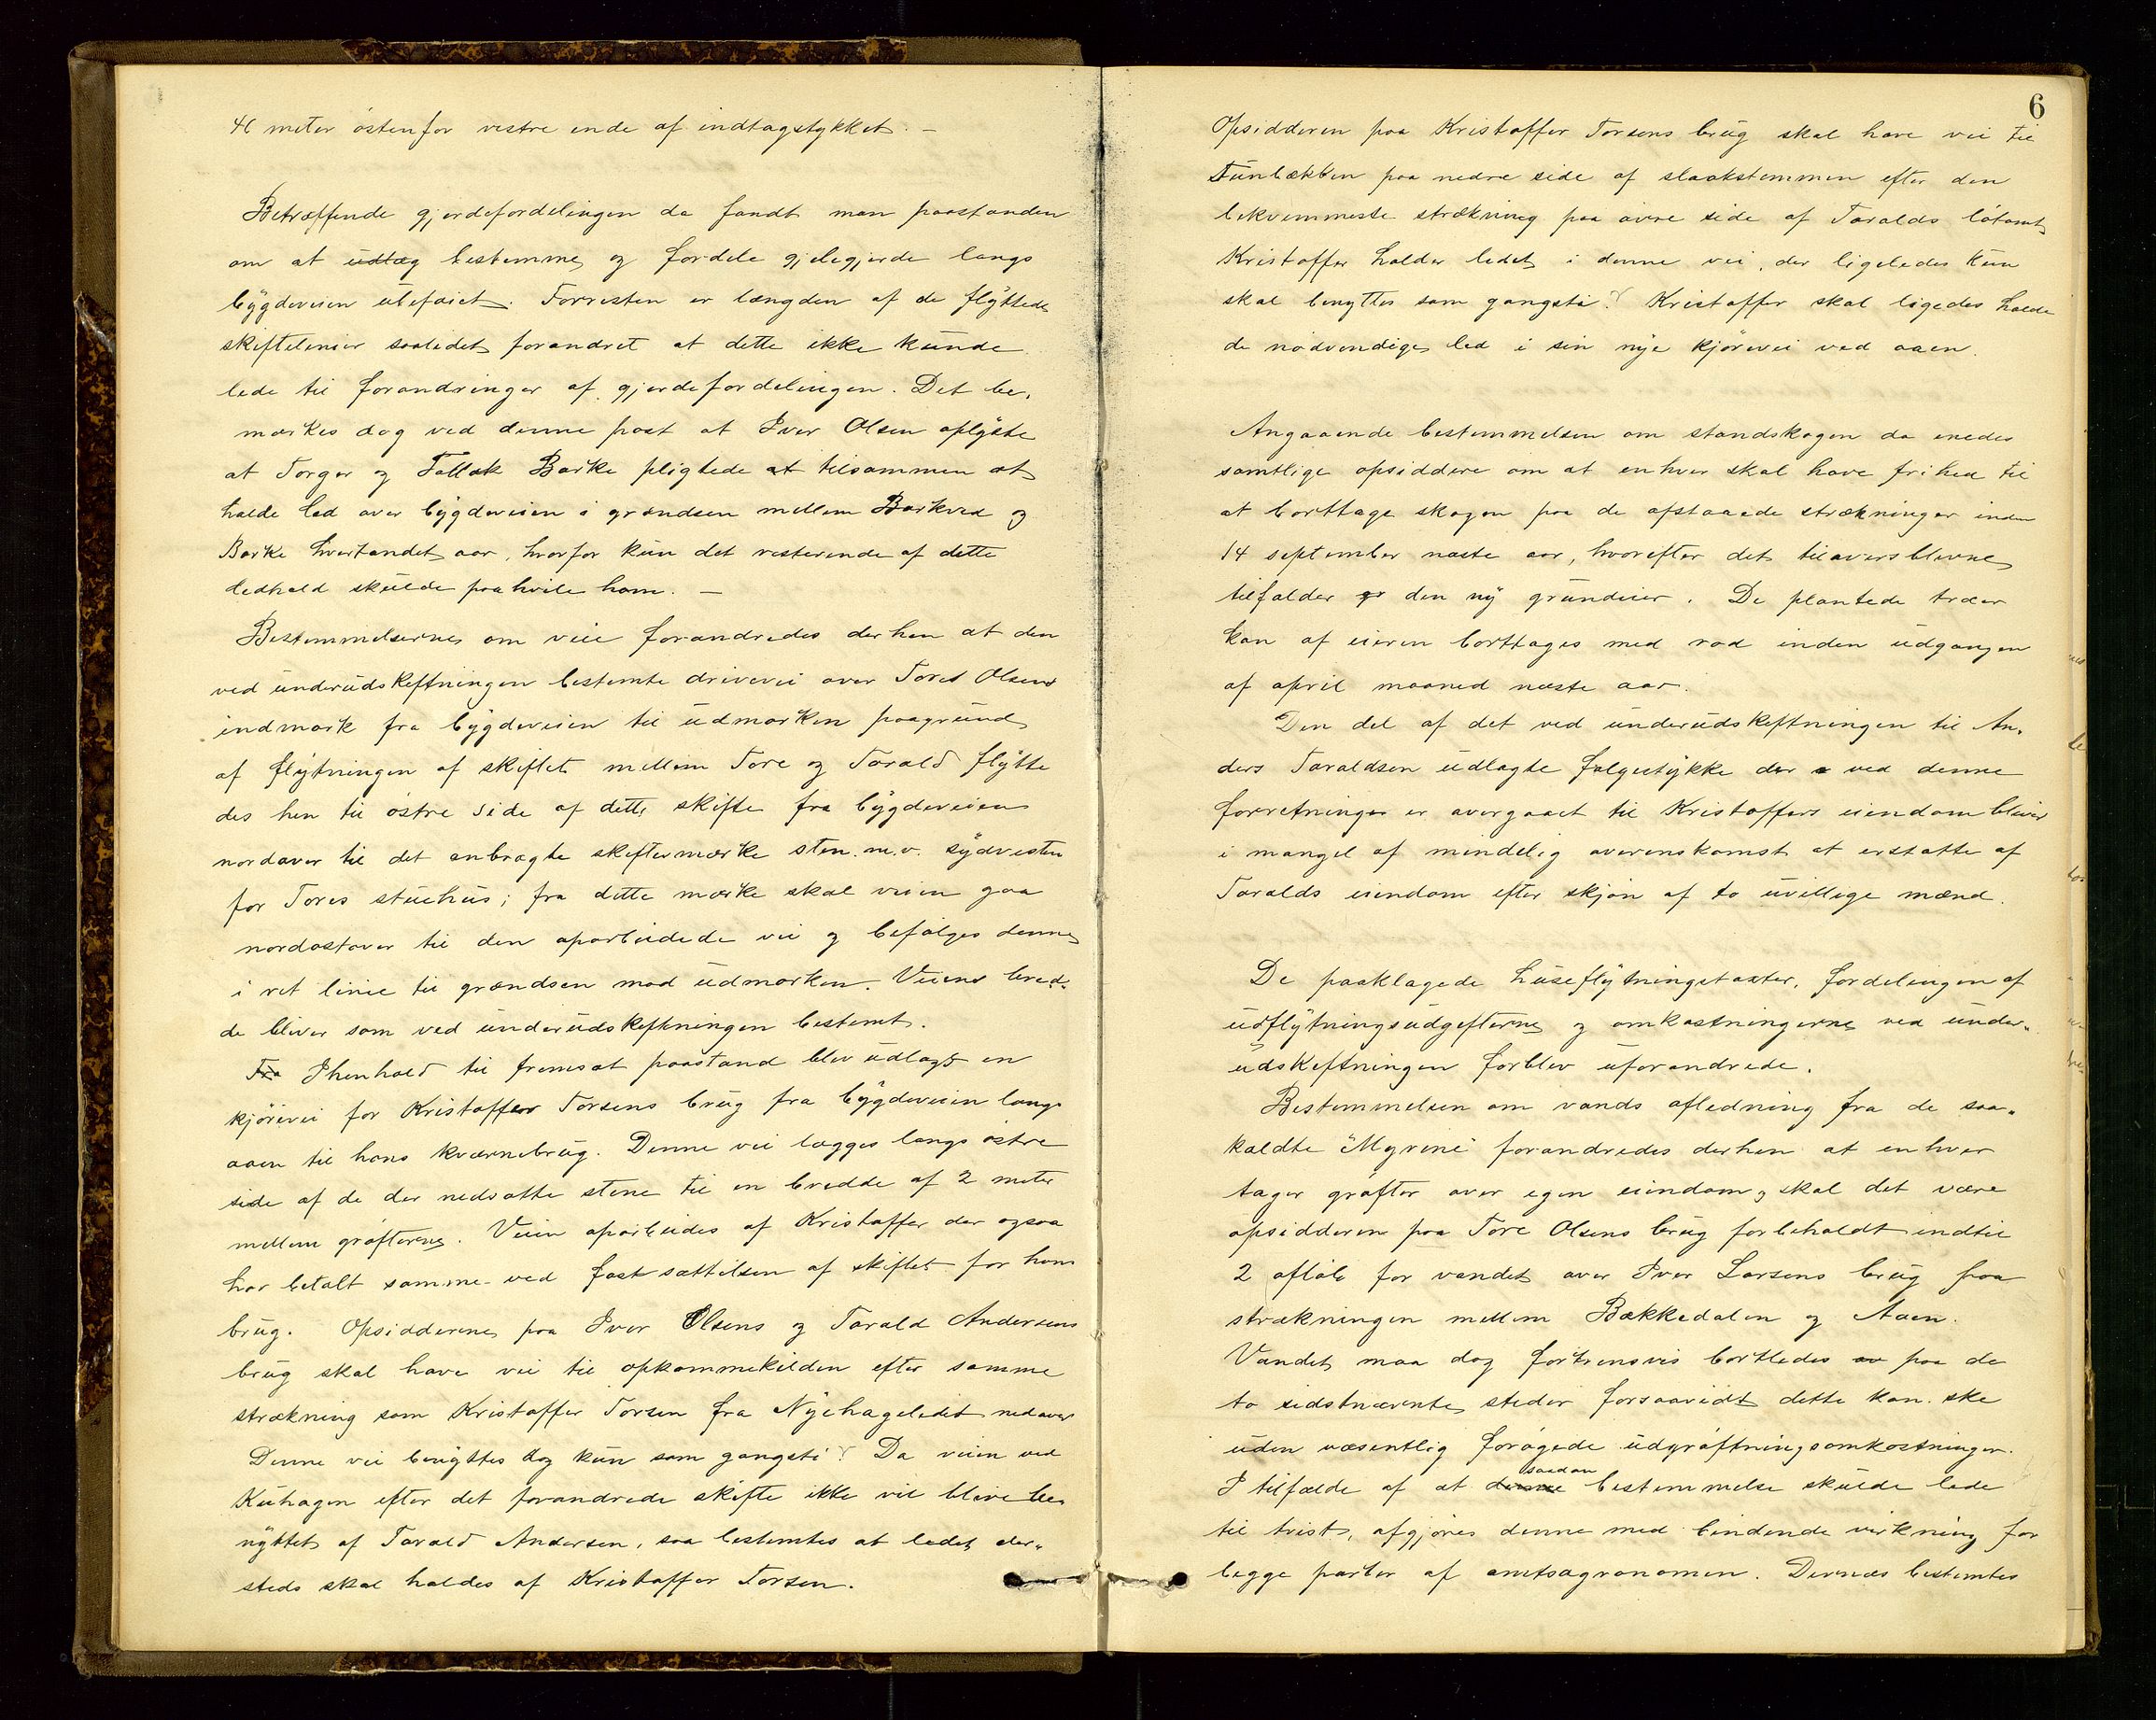 41 meter östenfor vestre ende af indtagstykket. –
Betræffende gjerdefordelingen da fandt man paastanden
om at udtag bestemme og fordele gjelegjerde langs
bygdeveien ubeföiet. Forresten er længden af de flyttede
skiftelinier saalidet forandret at dette ikke kunde
lede til forandringer af gjerdefordelingen. Det be,
mærkes dog ved denne post at Iver Olsen oplyste
at Torger og Tollak Barke pligtede at tilsammen at
holde led over bygdeveien i grændsen mellem Barkved og
Barke hvertandet aar, hvorfor kun det resterende af dette
ledhold skulde paahvile ham. –
Bestemmelserne om veie forandredes derhen at den
ved underudskiftningen bestemte drivevei over Tores Olsens
indmark fra bygdeveien til udmarken paagrund
af flytningen af skiftet mellem Tore og Tarald flytte
des hen til östre side af dette skifte fra bygdeveien
nordover til det anbragte skiftermærke sten. m.v. sydvesten
for Tores stuehus; fra dette mærke skal veien gaa
nordostover til den oparbeidede vei og befölges denne
i ret linie til grændsen mod udmarken. Veiens bred,
de bliver som ved underudskiftningen bestemt.
Fra Ihenhold til fremsat paastand blev udlagt en
kjörevei for Kristoffer Torsens brug fra bygdeveien langs
aaen til hans kværnebrug. Denne vei lægges langs östre
side af de der nedsatte stene til en bredde af 2 meter
mellem gröfterne. Veien oparbeides af Kristoffer der ogsaa
har betalt samme ved fastsættelsen af skiftet for hans
brug. Opsidderne paa Iver Olsens og Tarald Andersens
brug skal have vei til opkommekilden efter samme
strækning som Kristoffer Torsen fra Nyehageledet nedover
Denne vei benyttes dog kun som gangsti. Da veien ved
Kuhagen efter det forandrede skifte ikke vil blive be,
nyttet af Tarald Andersen, saa bestemtes at ledet der„
steds skal holdes af Kristoffer Torsen.
6
Opsidderen paa Kristoffer Torsens brug skal have vei til
Tunbækken paa nedre side af slaakstemmen efter den
bekvemmeste strækning paa övre side af Taralds
Kristoffer holder ledet i denne vei, der ligeledes kun
skal benyttes som gangsti. Kristoffer skal ligedes holde
de nödvendige led i sin nye kjörevei ved aaen.
Angaaende bestemmelsen om standskogen da enedes
samtlige opsiddere om at enhver skal have frihed til
at borttage skogen paa de afstaaede strækninger inden
14 september næste aar, hvorefter det tiloversblevne
tilfalder den ny grundeier. De plantede træer
kan af eieren borttages med rod inden udgangen
af april maaned næste aar.
Den del af det ved underudskiftningen til An,
ders Taraldsen udlagte fulgestykke der ved denne
forretninger er overgaaet til Kristoffers eiendom bliver
i mangel af mindelig overenskomst at erstatte af
Taralds eiendom efter skjön af to uvillige mænd.
De paaklagede husefly̆tningstaxter, fordelingen af
udflytningsudgifterne og omkostningerne ved under„
udskiftningen forblev uforandrede.
Bestemmelsen om vands afledning fra de saa„
kaldte "Myrene" forandredes derhen at enhver
tager gröfter over egen eiendom, skal det være
opsidderen paa Tore Olsens brug forbeholdt indtil
2 aflöb for vandet over Iver Larsens brug paa
strækningen mellem Bækkedalen og Aaen.
Vandet maa dog fortrinsvis bortledes paa de
to sidstnævnte steder forsaavidt dette kan ske
uden væsentlig forögede udgröftningsomkostninger.
I tilfælde af at denne saadan bestemmelse skulde lede
til tvist, afgjöres denne med bindende virkning for
begge parter af amtsagronomen. Dernæs bestemtes